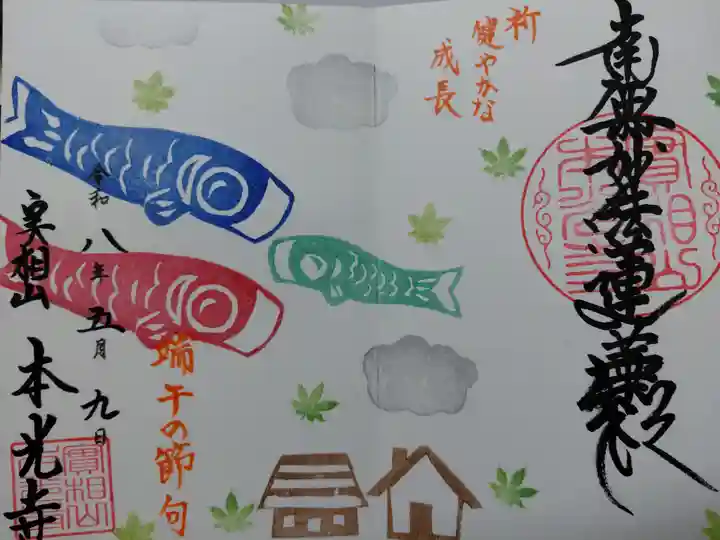 南無妙法蓮華経
祈
健やかな
成長
端午の節句
令和八年五月九日
実相山 本光寺